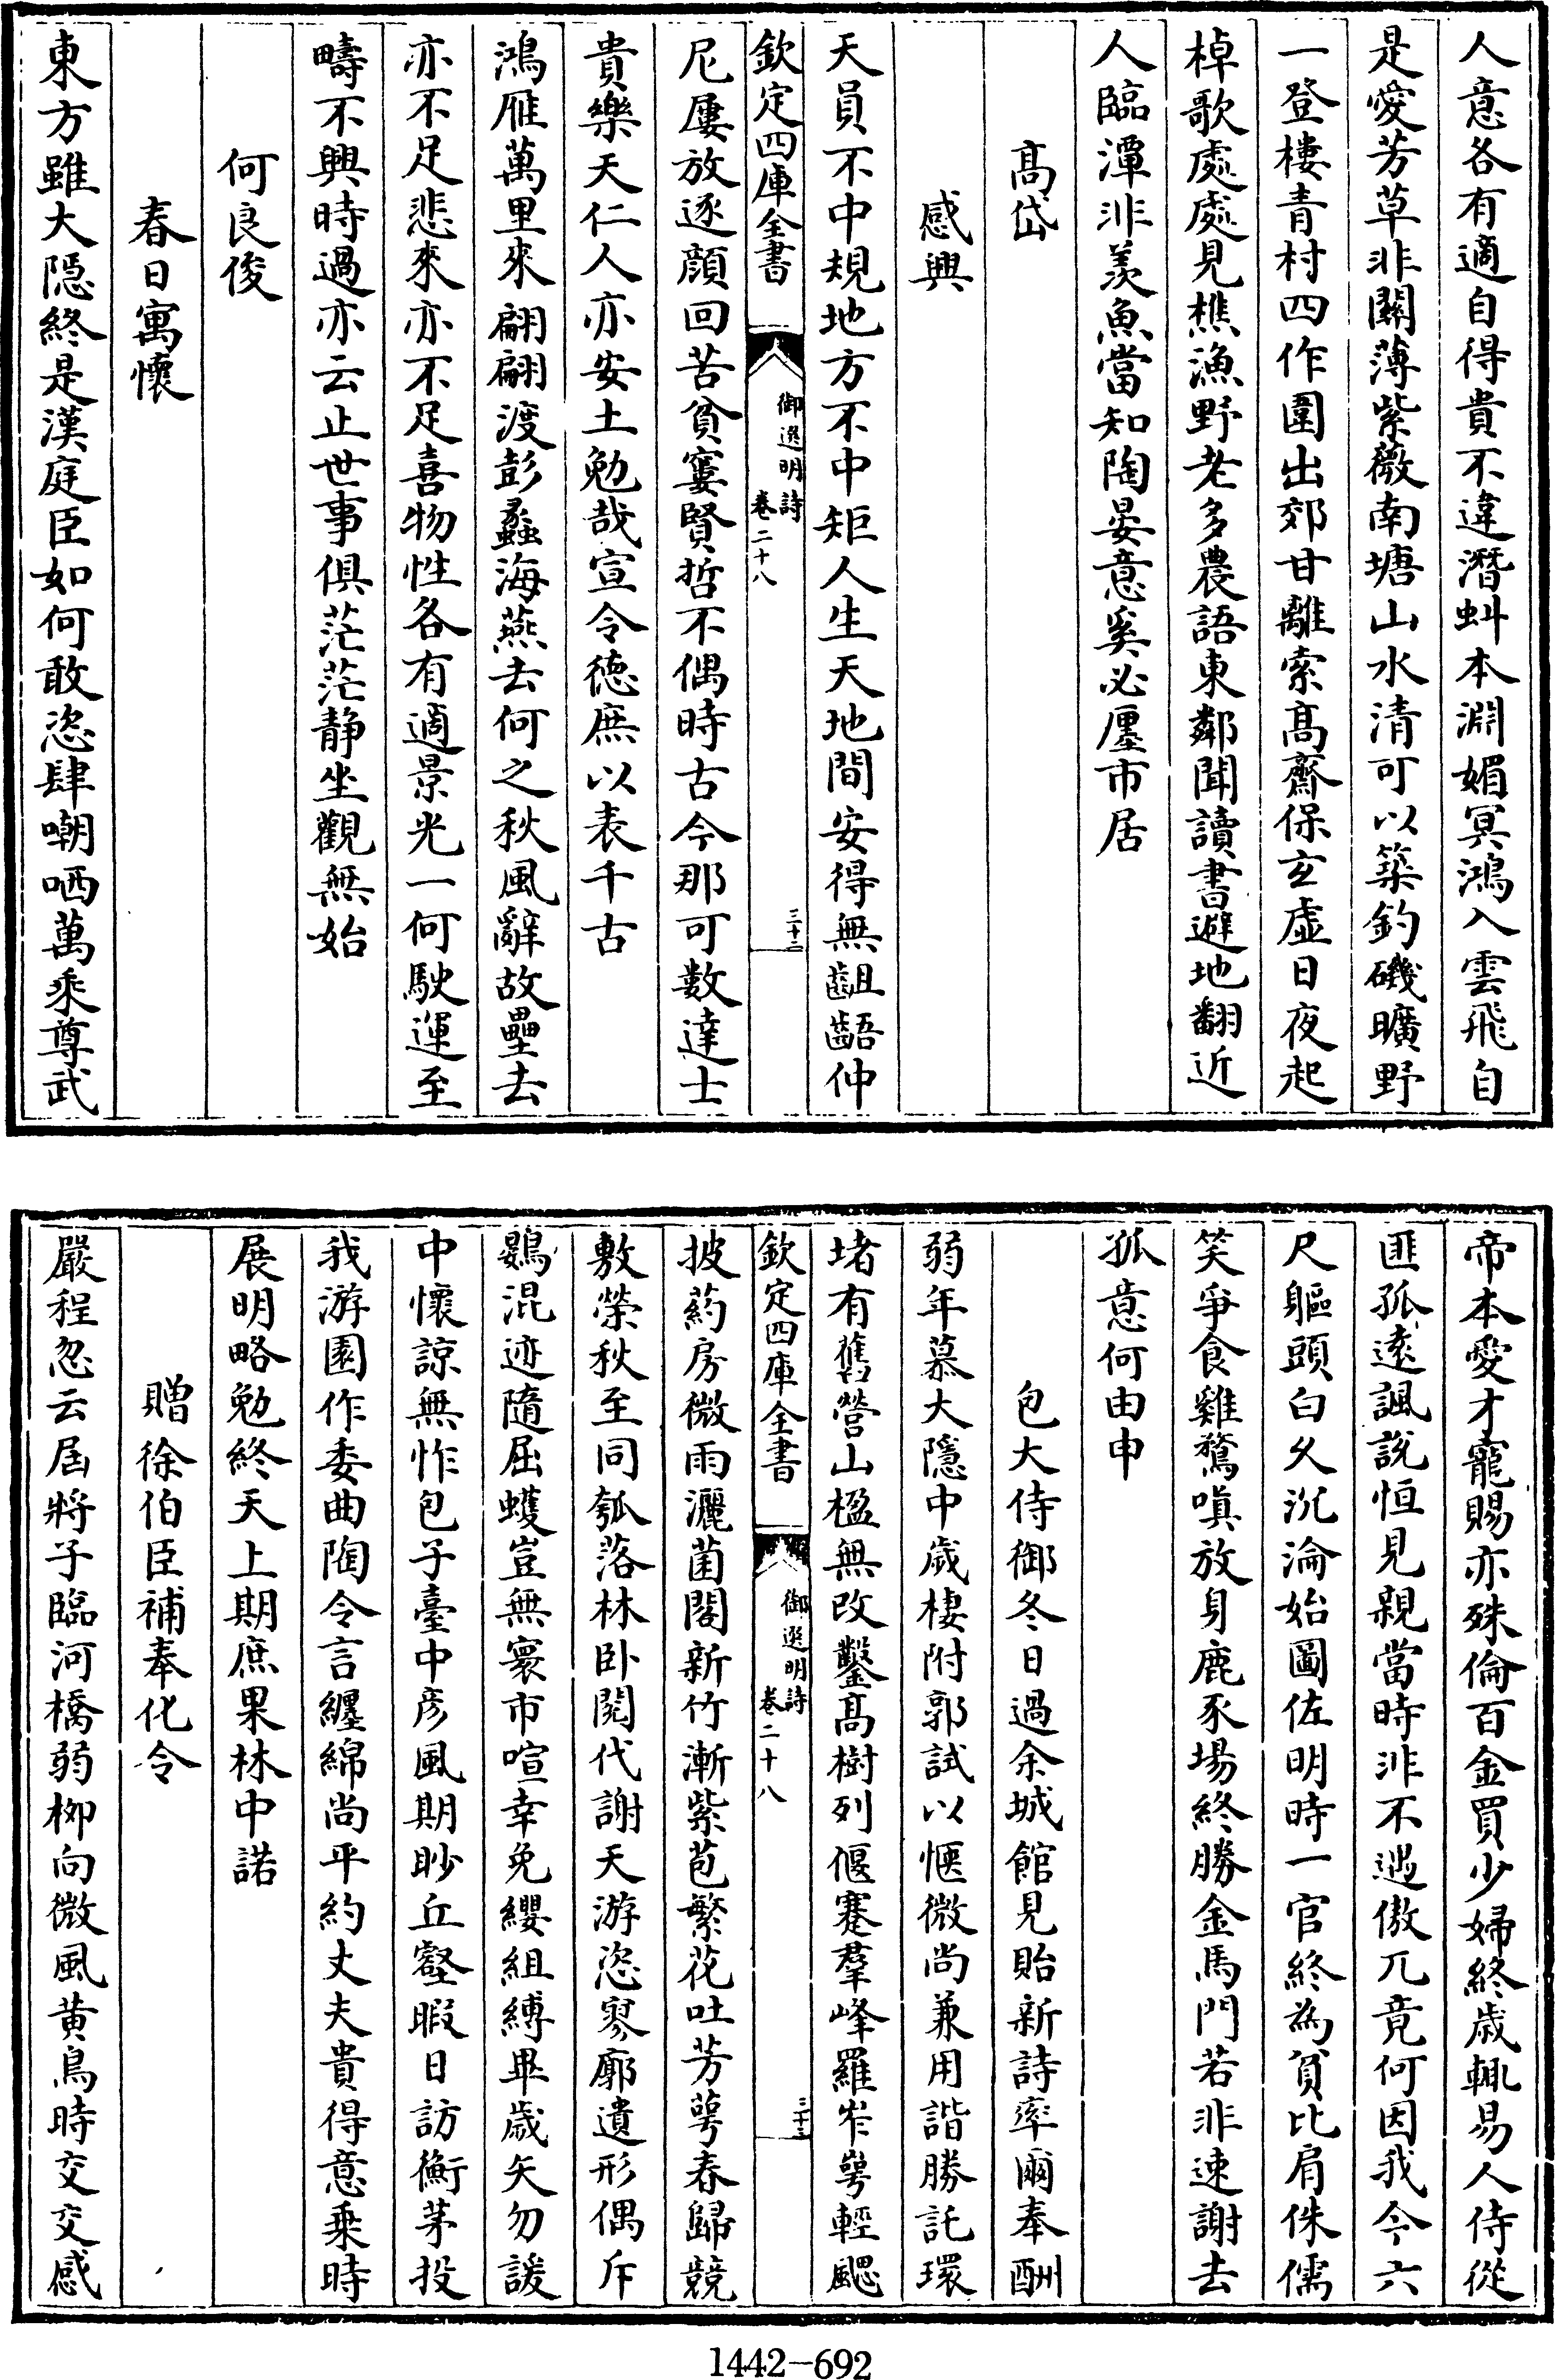 人意各有適自得貴不違潛虯本淵媚冥鴻入雲飛自
是愛芳草非關薄紫薇南塘山水清可以築釣磯曠野
一登樓青村四作圍出郊甘離索髙齋保玄虛日夜起
棹歌處處見樵漁野老多農語東鄰聞讀書避地翻近
人臨潭非羨魚當知陶晏意奚必廛市居
髙岱
感興
天員不中規地方不中矩人生天地間安得無齟齬仲
欽定四庫全書
御選明詩
卷二十八
三十二
尼屢放逐顔回苦貧窶賢哲不偶時古今那可數達士
貴樂天仁人亦安土勉哉宣令徳庶以表千古
鴻雁萬里來翩翩渡彭蠡海燕去何之秋風辭故壘去
亦不足悲來亦不足喜物性各有適景光一何駛運至
疇不興時過亦云止世事俱茫茫静坐觀無始
何良俊
春日寓懷
東方雖大隠終是漢庭臣如何敢恣肆嘲哂萬乘尊武
帝本愛才寵賜亦殊倫百金買少婦終歲輒易人侍從
匪孤逺諷說恒見親當時非不遇傲兀竟何因我今六
尺軀頭白久沉淪始圖佐明時一官終為貧比肩侏儒
笑爭食雞鶩嗔放身鹿豕場終勝金馬門若非速謝去
孤意何由申
包大侍御冬日過余城館見貽新詩率爾奉酬
弱年慕大隱中歲棲附郭試以愜微尚兼用諧勝託環
堵有舊營山楹無改鑿髙樹列偃蹇羣峰羅岝崿輕颸
欽定四庫全書
御選明詩
卷二十八
三十三
披葯房微雨灑菌閣新竹漸紫苞繁花吐芳萼春歸競
敷榮秋至同瓠落林卧閱代謝天游恣寥廓遺形偶斥
鷃混迹隨屈蠖豈無寰市喧幸免纓組縛畢歲矢勿諼
中懷諒無怍包子臺中彦風期眇丘壑暇日訪衡茅投
我游園作委曲陶令言纒綿尚平約丈夫貴得意乘時
展明略勉終天上期庶果林中諾
贈徐伯臣補奉化令
嚴程忽云屆將子臨河橋弱栁向微風黄鳥時交交感
1442-692